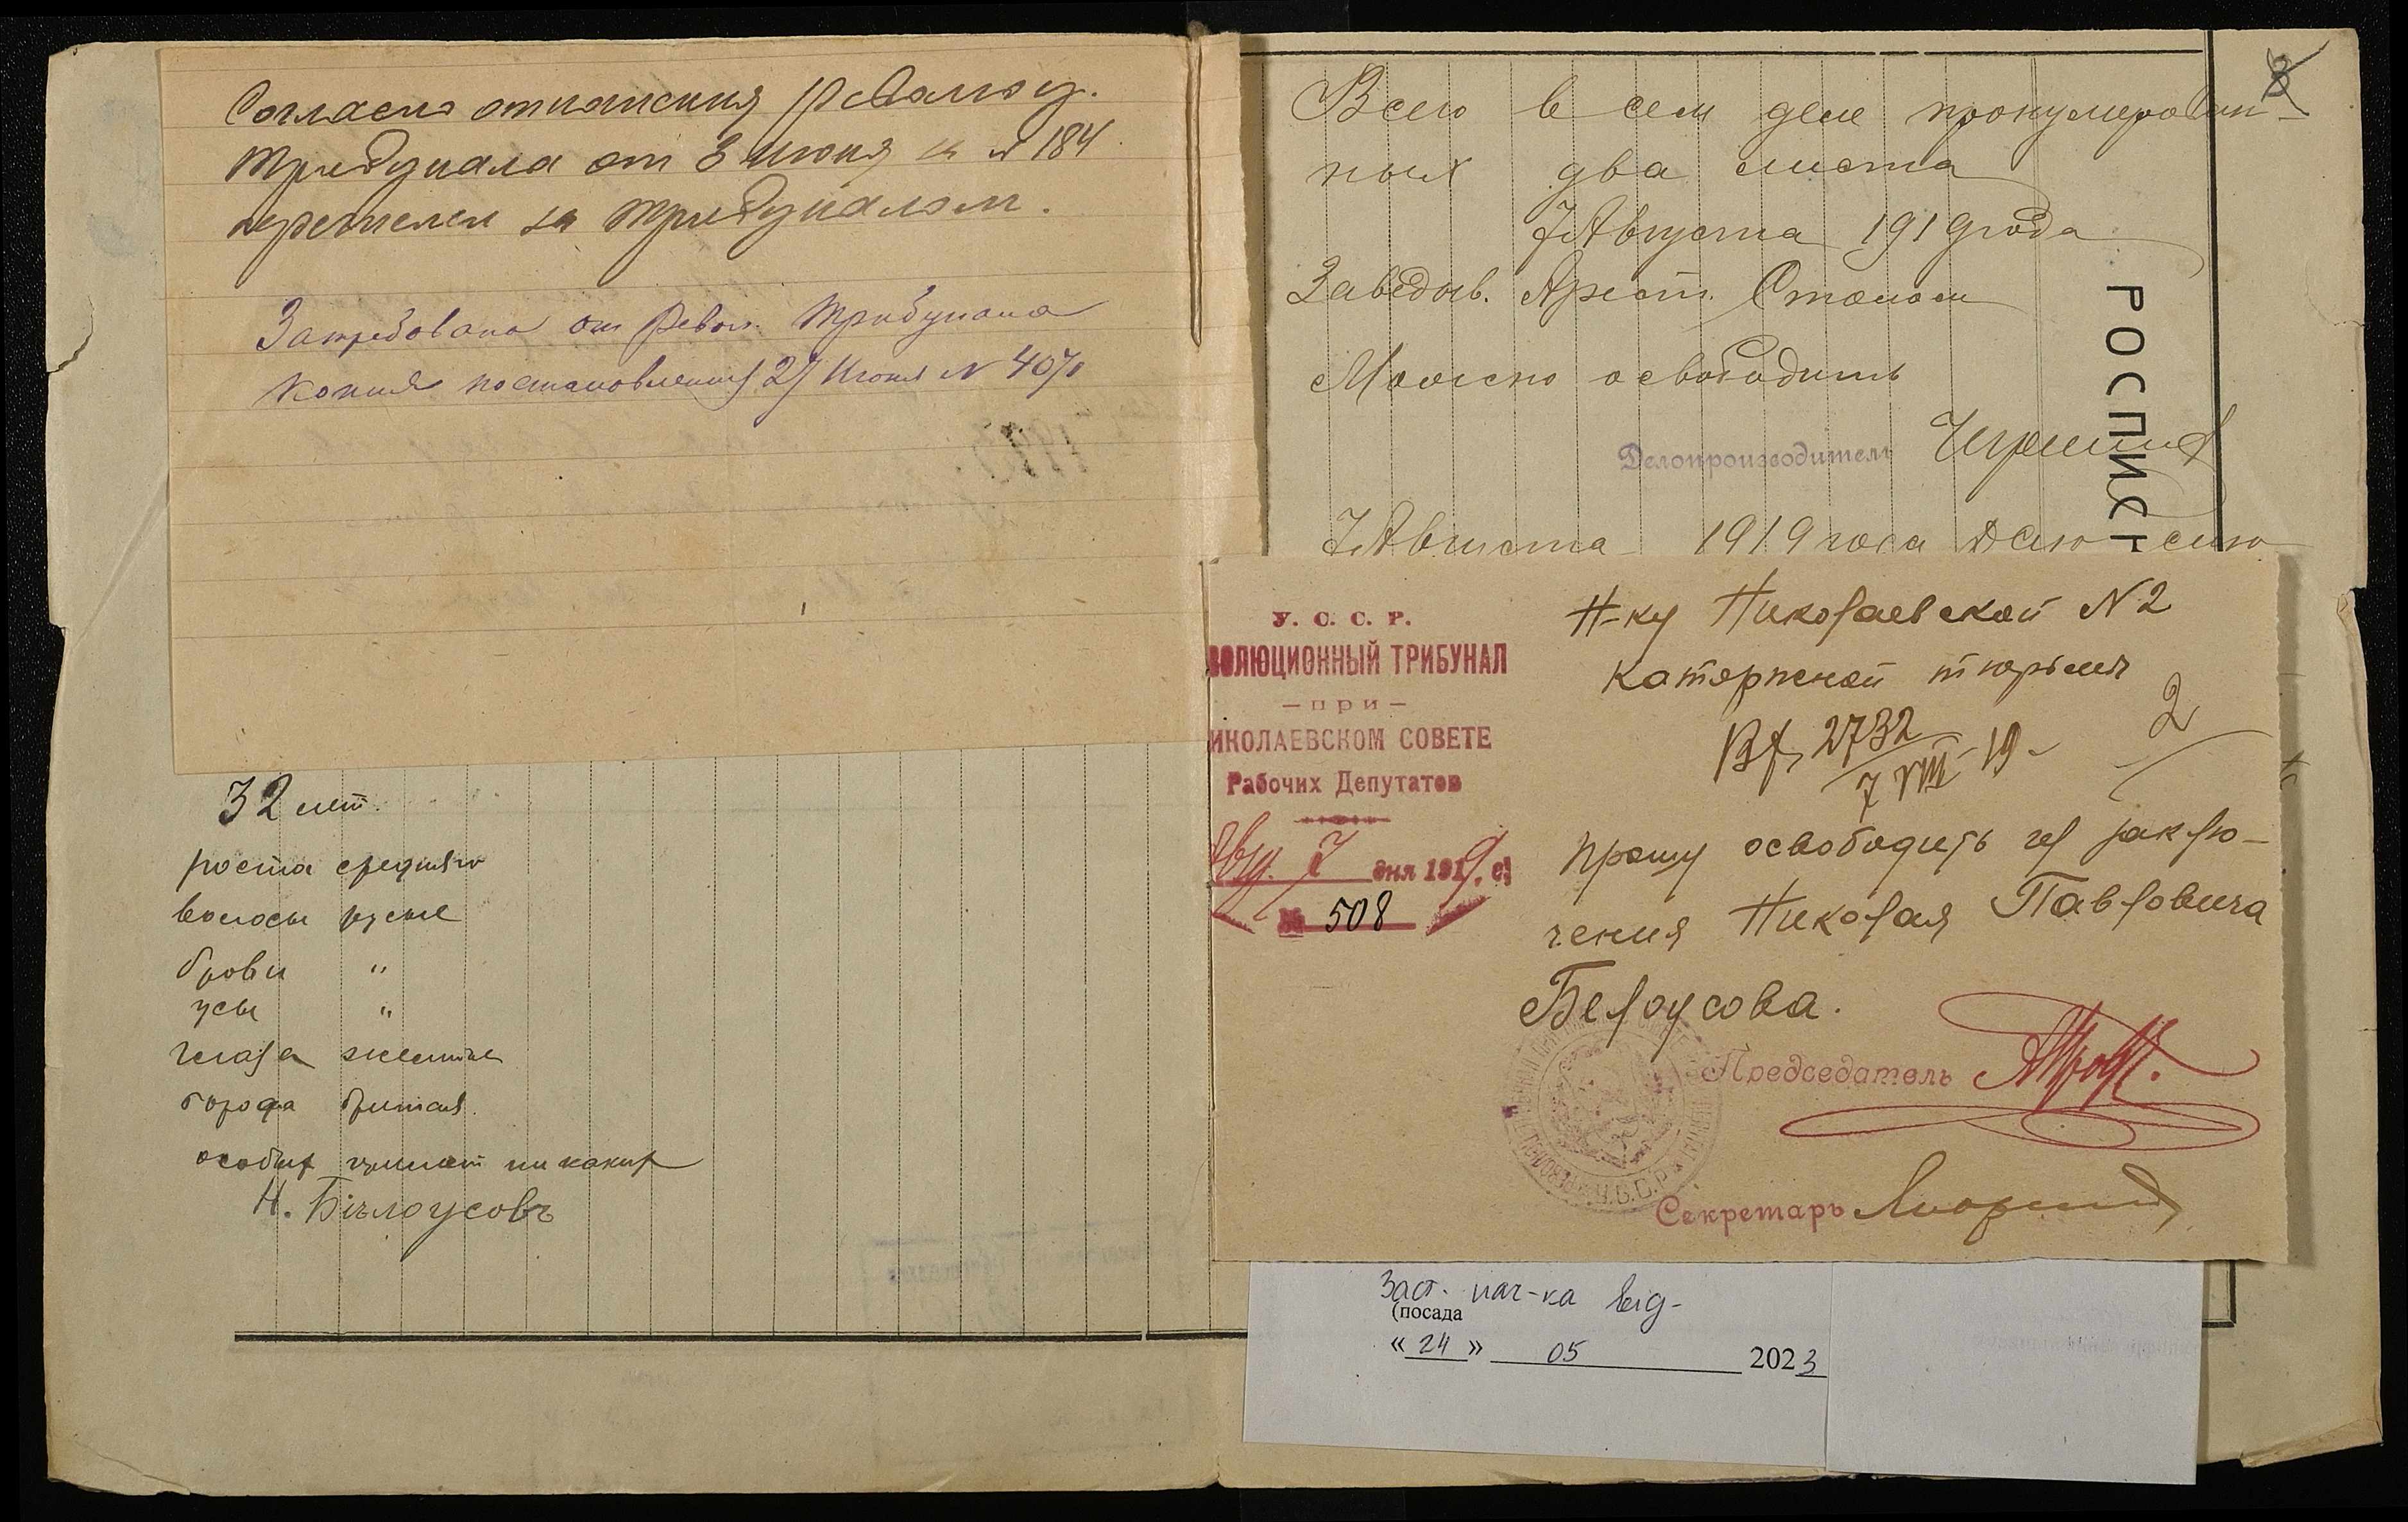 Согласно отношения Революц.
Трибунала от 3 Июня за № 184
перечислен за Трибуналом.
Затребована от Револ. Трибунала
копия постановления 27 Июня № 4070
32 лет.
роста среднего
волосы русые
брови "
усы "
глаза желтые
борода бритая.
особых примет никаких
Н. Бѣлоусовъ
3
Всего в сем деле пронумерован-
ных два листа
7 Августа 1919 года
Заведыв. Арест. Столом
Можно освободить
Делопроизводитель
7 Августа 1919 года дело сие
РОСПИС
У. С. С. Р.
ВОЛЮЦИОННЫЙ ТРИБУНАЛ
— при —
ИКОЛАЕВСКОМ СОВЕТЕ
Рабочих Депутатов
Авг. 7 дня 1919 г.
№ 508
Н-ку Николаевской N 2
каторжной тюрьмы
Вх. 2732
7 VIII 19
2
Прошу освободить из заклю-
чения Николая Павловича
Белоусова.
Председатель
Секретарь
У.С.С.Р.
Заст. нач-ка від-
(посада
« 24 » 05 2023